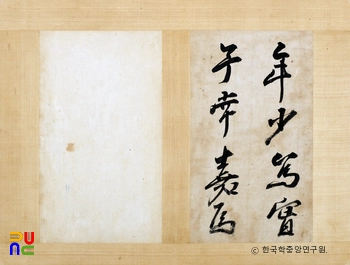 年少篤實
子幸嘉焉
ⓒ 한국학중앙연구원.